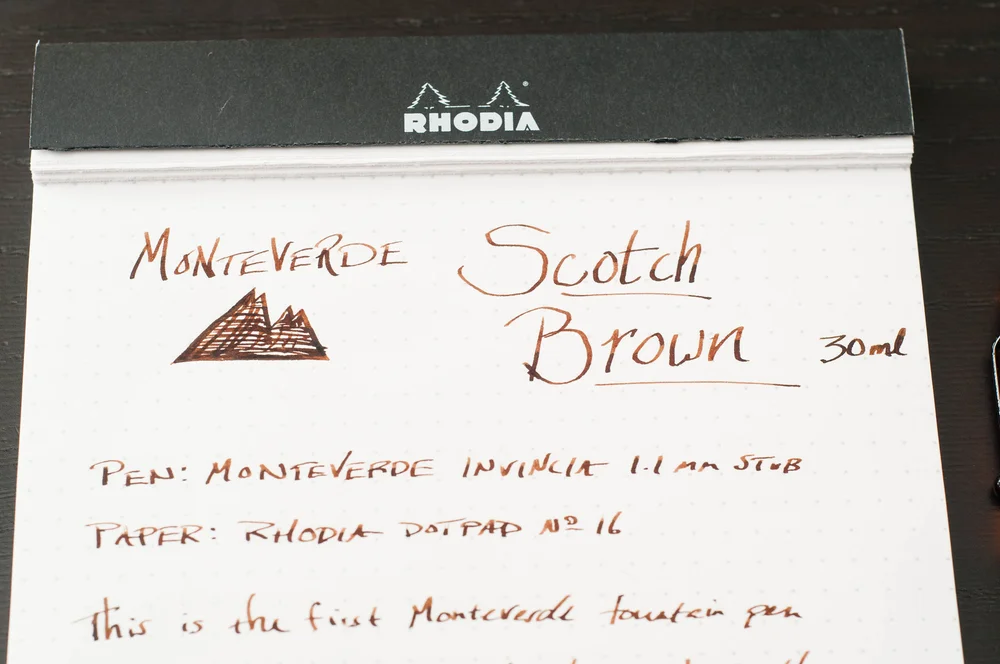 RHODIA
MONTEVERDE Scotch
Brown 30ml
PEN: MONTEVERDE INVINCIA 1.1 mm STUB
PAPER: RHODIA DOTPAD Nº 16
This is the first Monteverde fountain pen